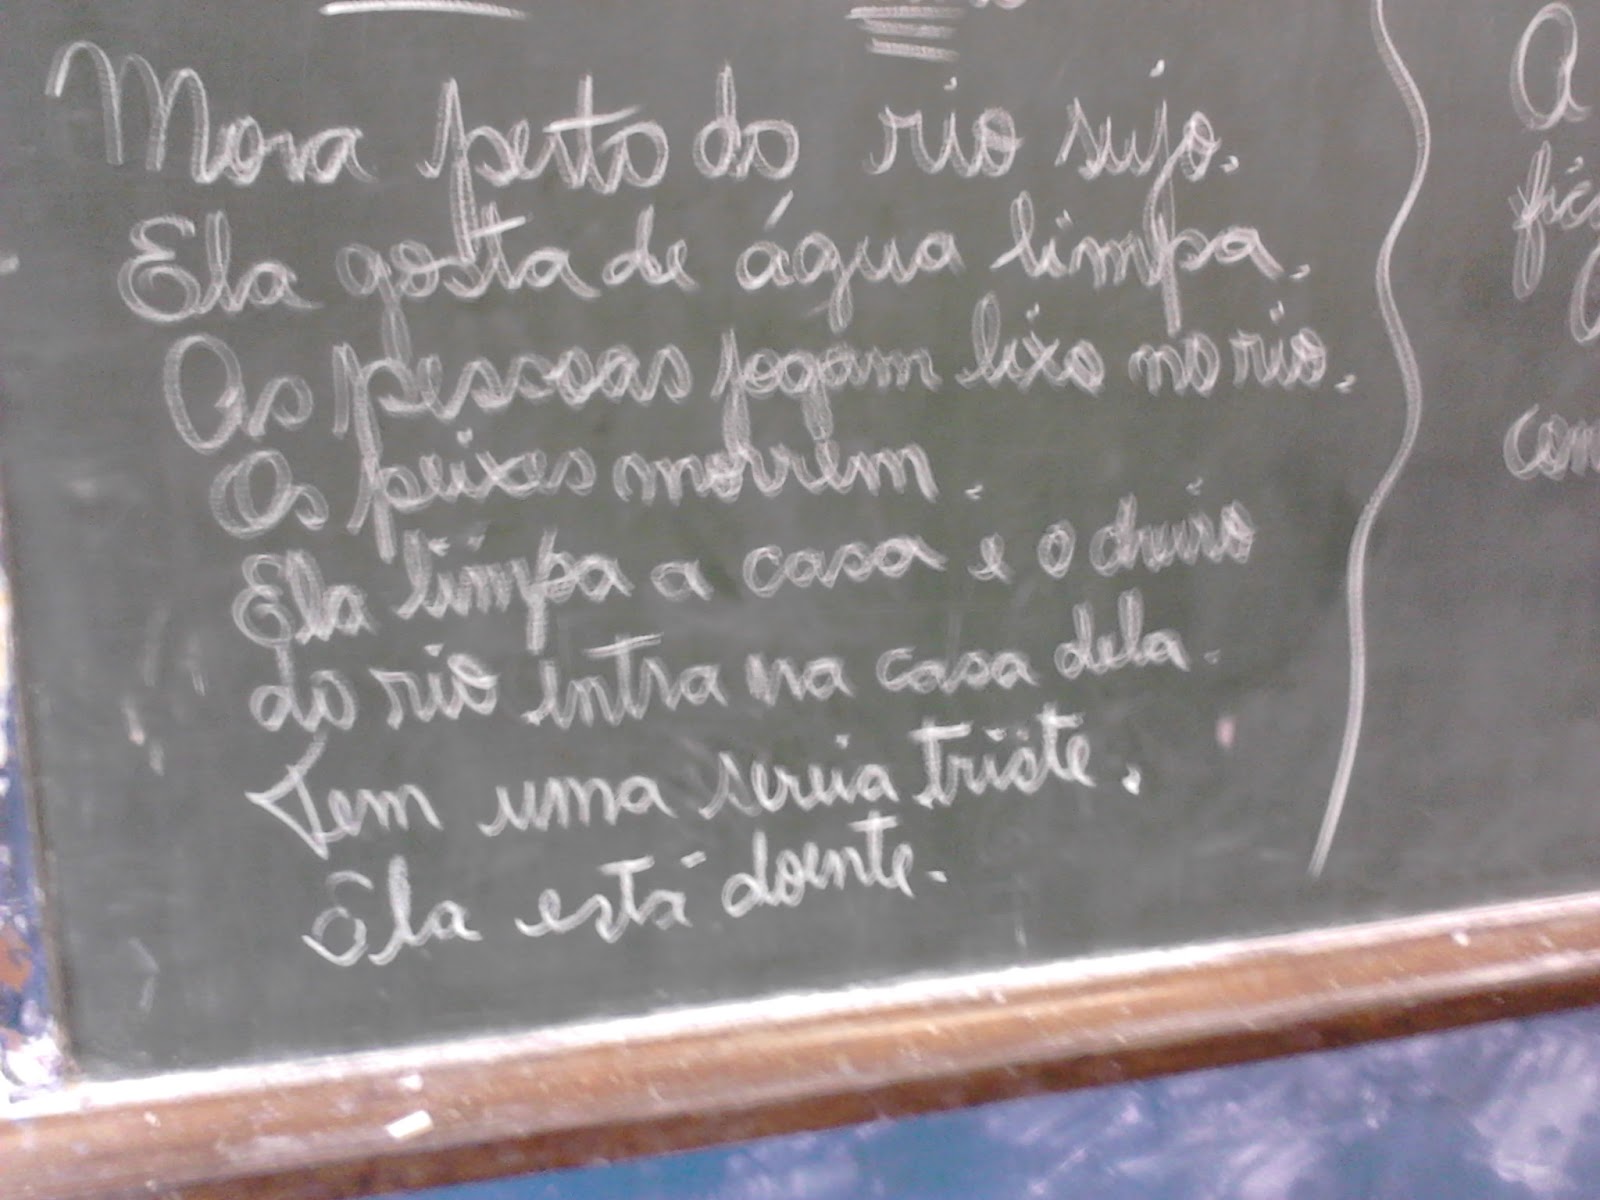 Mora perto do rio sujo.
Ela gosta de água limpa.
As pessoas jogam lixo no rio.
Os peixes morrem.
Ela limpa a casa e o cheiro
do rio entra na casa dela.
Tem uma sereia triste.
Ela está doente.
A